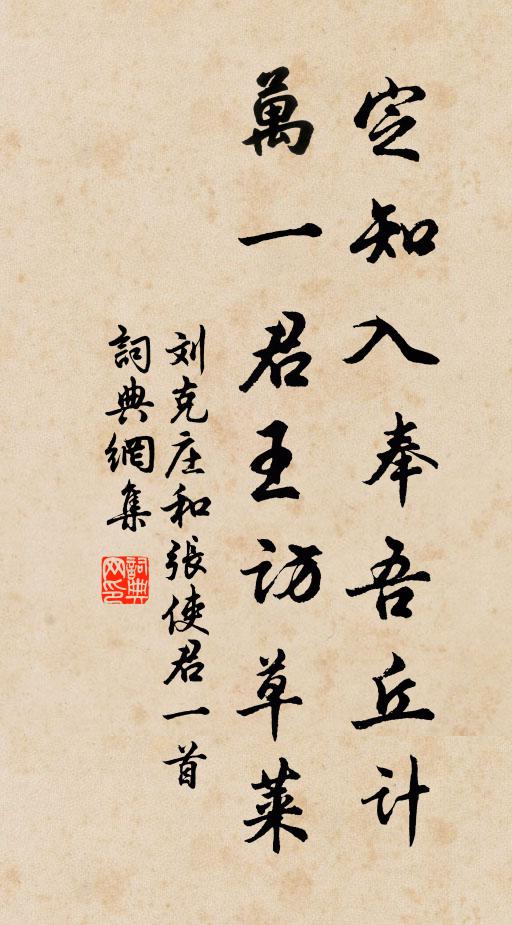 定知入奉吾丘計
萬一君王訪草萊
刘克庄和張使君一首
詞典網集
詞典网印